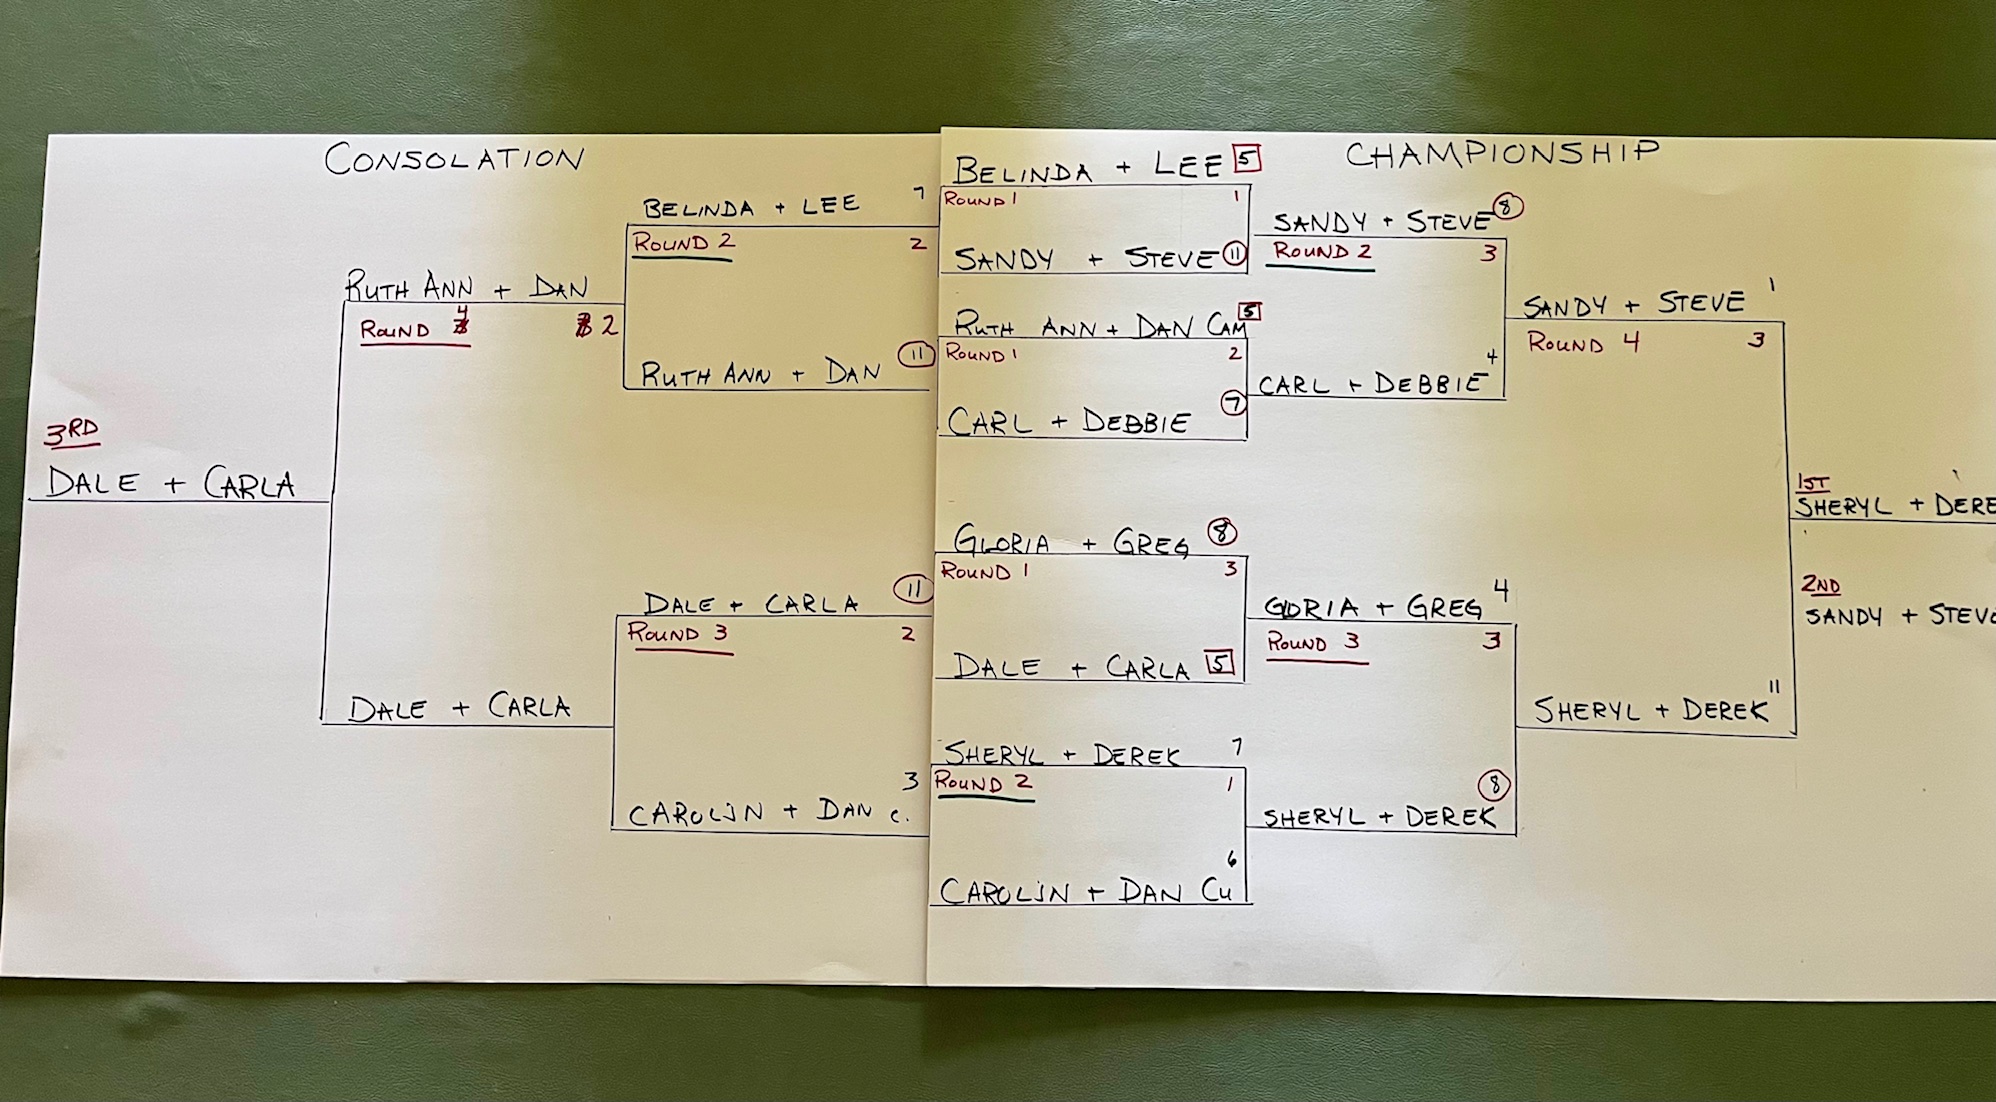 CONSOLATION
BELINDA + LEE 7
ROUND 2 2
RUTH ANN + DAN
ROUND 4 2
RUTH ANN + DAN 11
3RD
DALE + CARLA
DALE + CARLA 11
ROUND 3 2
DALE + CARLA
3
CAROLIJN + DAN C.
CHAMPIONSHIP
BELINDA + LEE 5
ROUND 1 1
SANDY + STEVE 11
RUTH ANN + DAN CAM 5
ROUND 1 2
CARL + DEBBIE 7
GLORIA + GREG 8
ROUND 1 3
DALE + CARLA 5
SHERYL + DEREK 7
ROUND 2 1
6
CAROLIJN + DAN CU
SANDY + STEVE 8
ROUND 2 3
CARL + DEBBIE 4
GLORIA + GREG 4
ROUND 3 3
8
SHERYL + DEREK
SANDY + STEVE 1
ROUND 4 3
SHERYL + DEREK 11
1ST
SHERYL + DERE
2ND
SANDY + STEV